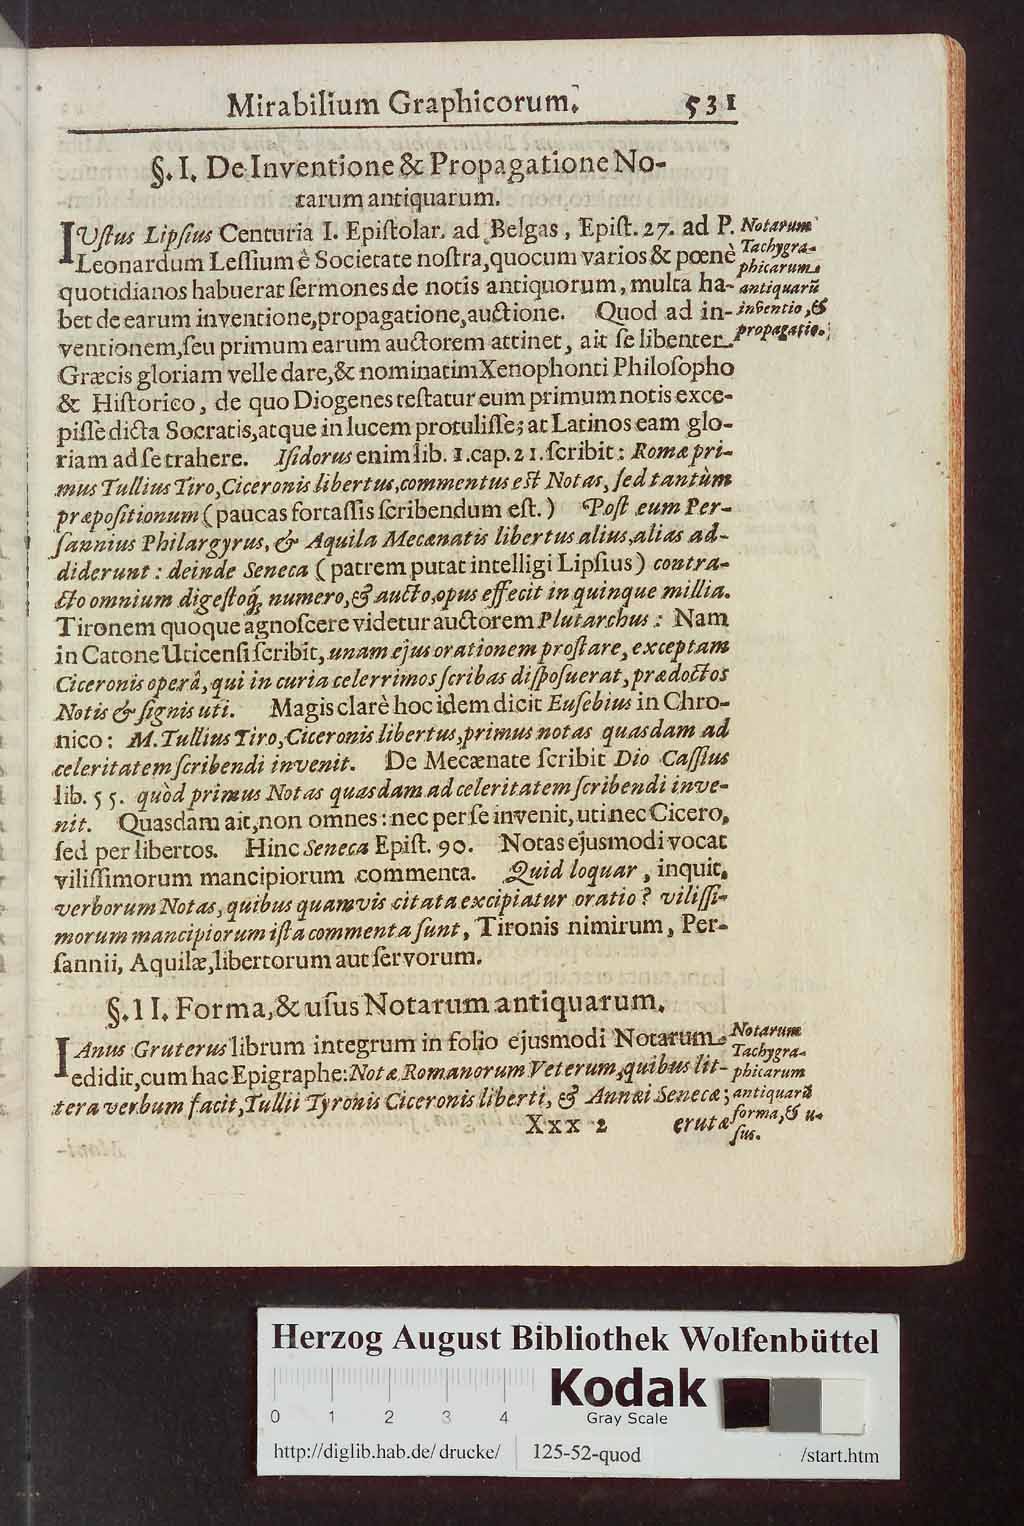 Mirabilium Graphicorum. 531
§. I. De Inventione & Propagatione No-
tarum antiquarum.
IUſtus Lipſius Centuria I. Epiſtolar. ad Belgas, Epiſt. 27. ad P.
Leonardum Leſſium è Societate noſtra, quocum varios & pœnè
quotidianos habuerat ſermones de notis antiquorum, multa ha-
bet de earum inventione, propagatione, auctione. Quod ad in-
ventionem, ſeu primum earum auctorem attinet, ait ſe libenter
Græcis gloriam velle dare, & nominatim Xenophonti Philoſopho
& Hiſtorico, de quo Diogenes teſtatur eum primum notis exce-
piſſe dicta Socratis, atque in lucem protuliſſe; at Latinos eam glo-
riam ad ſe trahere. Iſidorus enim lib. 1. cap. 21. ſcribit: Romæ pri-
mus Tullius Tiro, Ciceronis libertus, commentus eſt Notas, ſed tantùm
præpoſitionum (paucas fortaſſis ſcribendum eſt.) Poſt eum Per-
ſannius Philargyrus, & Aquila Mecænatis libertus alius, alias ad-
diderunt: deinde Seneca (patrem putat intelligi Lipſius) contra-
cto omnium digeſtoq́; numero, & aucto, opus effecit in quinque millia.
Tironem quoque agnoſcere videtur auctorem Plutarchus: Nam
in Catone Uticenſi ſcribit, unam ejus orationem proſtare, exceptam
Ciceronis operâ, qui in curia celerrimos ſcribas diſpoſuerat, prædoctos
Notis & ſignis uti. Magis clarè hoc idem dicit Euſebius in Chro-
nico: M. Tullius Tiro, Ciceronis libertus, primus notas quasdam ad
celeritatem ſcribendi invenit. De Mecænate ſcribit Dio Caſſius
lib. 55. quòd primus Notas quasdam ad celeritatem ſcribendi inve-
nit. Quasdam ait, non omnes: nec per ſe invenit, uti nec Cicero,
ſed per libertos. Hinc Seneca Epiſt. 90. Notas ejusmodi vocat
viliſſimorum mancipiorum commenta. Quid loquar, inquit,
verborum Notas, quibus quamvis citata excipiatur oratio? viliſſi-
morum mancipiorum iſta commenta ſunt, Tironis nimirum, Per-
ſannii, Aquilæ, libertorum aut ſervorum.
Notarum
Tachygra-
phicarum
antiquarũ
inventio, &
propagatio.
§. II. Forma, & uſus Notarum antiquarum.
IAnus Gruterus librum integrum in folio ejusmodi Notarum
edidit, cum hac Epigraphe: Notæ Romanorum Veterum, quibus lit-
tera verbum facit, Tullii Tyronis Ciceronis liberti, & Annæi Senecæ;
Xxx 2 erutæ
Notarum
Tachygra-
phicarum
antiquarũ
forma, & u-
ſus.
Herzog August Bibliothek Wolfenbüttel
Kodak
Gray Scale
0 1 2 3 4
http://diglib.hab.de/drucke/ 125-52-quod /start.htm